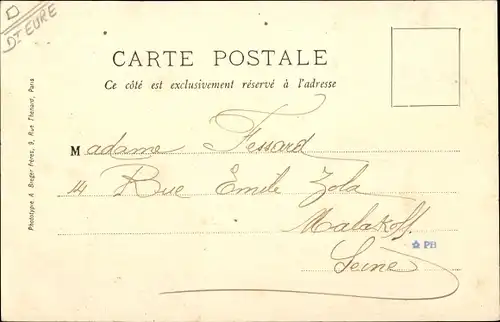 Dt EURE
CARTE POSTALE
Ce côté est exclusivement réservé à l'adresse
Madame Fessard
14 Rue Emile Zola
Malakoff
PB
Seine
Phototypie A. Breger Frères, 9, Rue Thénard, Paris